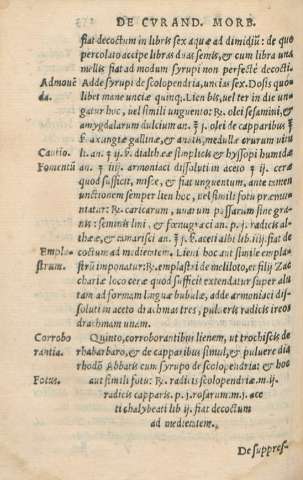 DE CVRAND. MORB.
fiat decoctum in libris sex aquæ ad dimidiũ: de quo
percolato accipe libras duas semis, & cum libra una
mellis fiat ad modum syrupi non perfectè decocti.
Admouẽda.
Adde syrupi de scolopendria, uncias sex. Dosis quóli
libet mane unciæ quinq;. Lien bis, uel ter in die un-
gatur hoc, uel simili unguento: ℞. olei sesamini, &
amygdalarum dulcium an. ℥ j. olei de capparibus ℥
ß. axungiæ gallinæ, & anatis, medullæ crurum uitu
Cautio.
li. an. ℥ ij. ß. dialtheæ simplicis & hyssopi humidæ
Fomentũ
an. ʒ iiij. armoniaci dissoluti in aceto ℥ ij. ceræ
quod sufficit, misce, & fiat unguentum, ante tamen
unctionem semper lien hoc, uel simili fotu præmu-
niatur: ℞. caricarum, uuarum passarum sine gra-
nis: seminis lini, & fœnugræci an. p. j. radicis al-
thææ, & cucumeris an. ℥ j. ß. aceti albi lib. iiij. fiat de
Empla-strum.
coctum ad medietem. Lieni hoc aut simile empla-
strũ imponatur: ℞. emplastri de meliloto, et filij Zac
chariæ loco ceræ quod sufficit extendatur super alu
tam ad formam linguæ bubulæ, adde armoniaci dis-
soluti in aceto drachmas tres, pulueris radicis ireos
drachmam unam.
Corroborantia.
Quinto, corroborantibus lienem, ut trochiscis de
rhabarbaro, & de capparibus simul, & puluere dia
rhodõ Abbatis cum syrupo de scolopendria: & hoc
Fotus.
aut simili fotu: ℞. radicis scolopendriæ. m. ij.
radicis capparis. p. j. rosarum. m. j. ace
ti chalybeati lib ij. fiat decoctum
ad medietem.
De suppres-